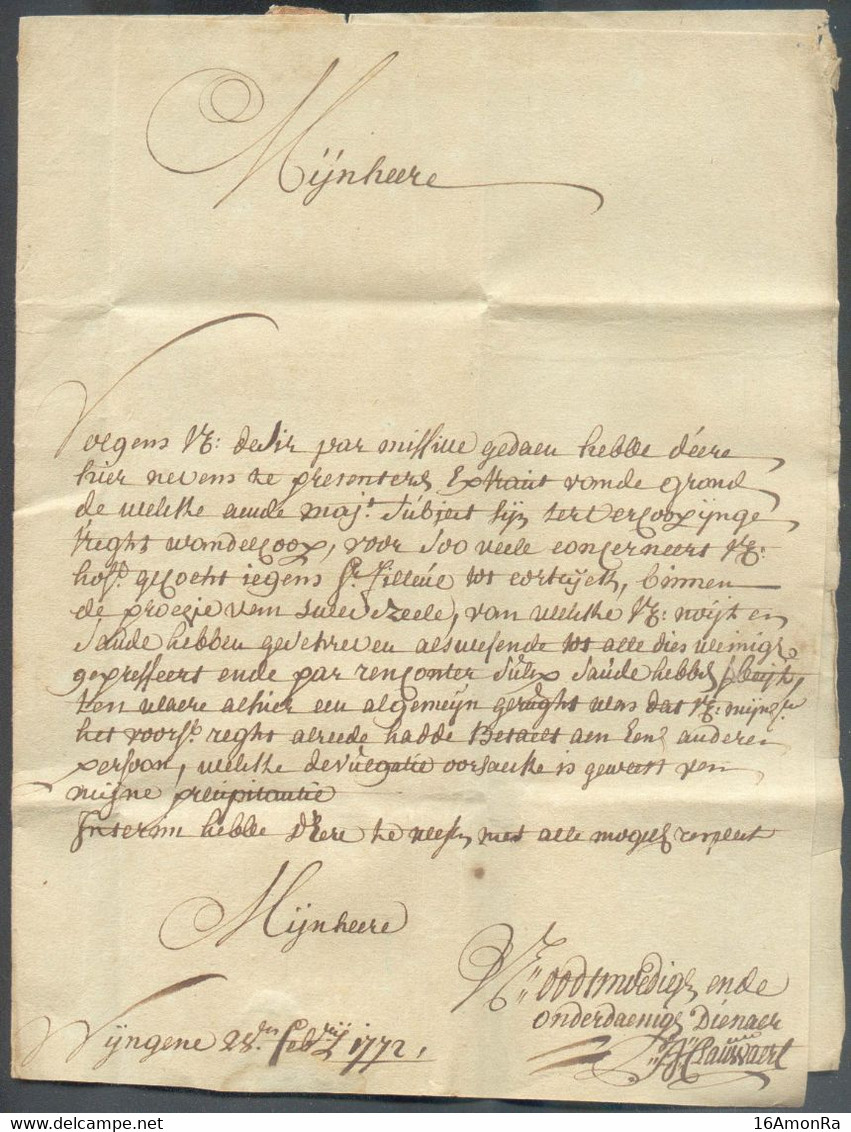 Mijnheere
Volgens VE: desir par missive gedaen hebbe d'eere
hier nevens te presenteren Extrait vande grond
de welke aende maj.t subject sijn ter vercoopijnge
't reght vanden coop, voor soo veele concerneert VE:
gecocht jegens tot cortrijck, binnen
de prochie van Sweveseele, van welke VE: noijt en
soude hebben geschreven alswesende tot alle dies weinigh
gepresseert ende par renconter sulcx soude hebben
ten waere alhier een algemeijn gerught was dat VE:
het voors. reght alreede hadde betaelt aen eene andere
persoon, welke devulgatie oorsaeke is geweest van
mijne precipitantie
Interim hebbe d'Eere te wesen met alle mogel. respect
Mijnheere
VE oodtmoedigh ende
onderdaenigh Dienaer
Clauwaert
Wijngene 28.en feb.rij 1772,
https://www.delcampe.net
16AmonRa